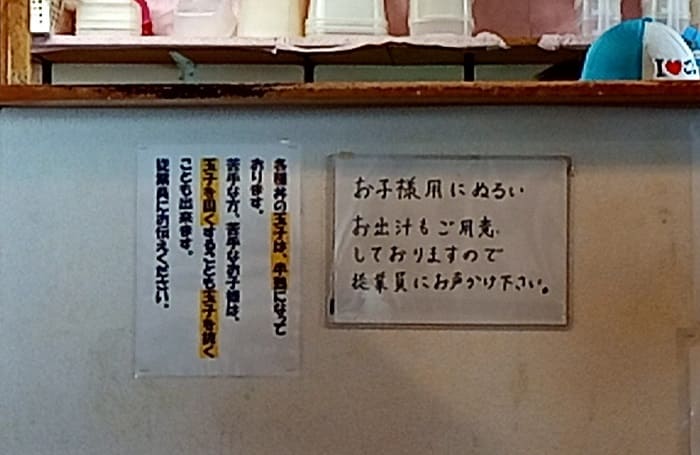 各種丼の玉子は、半熟になって
おります。
苦手な方、苦手なお子様は、
玉子を固くすることも玉子を焼く
ことも出来ます。
従業員にお伝えください。
お子様用にぬるい
お出汁もご用意
しておりますので
従業員にお声かけ下さい。
I❤